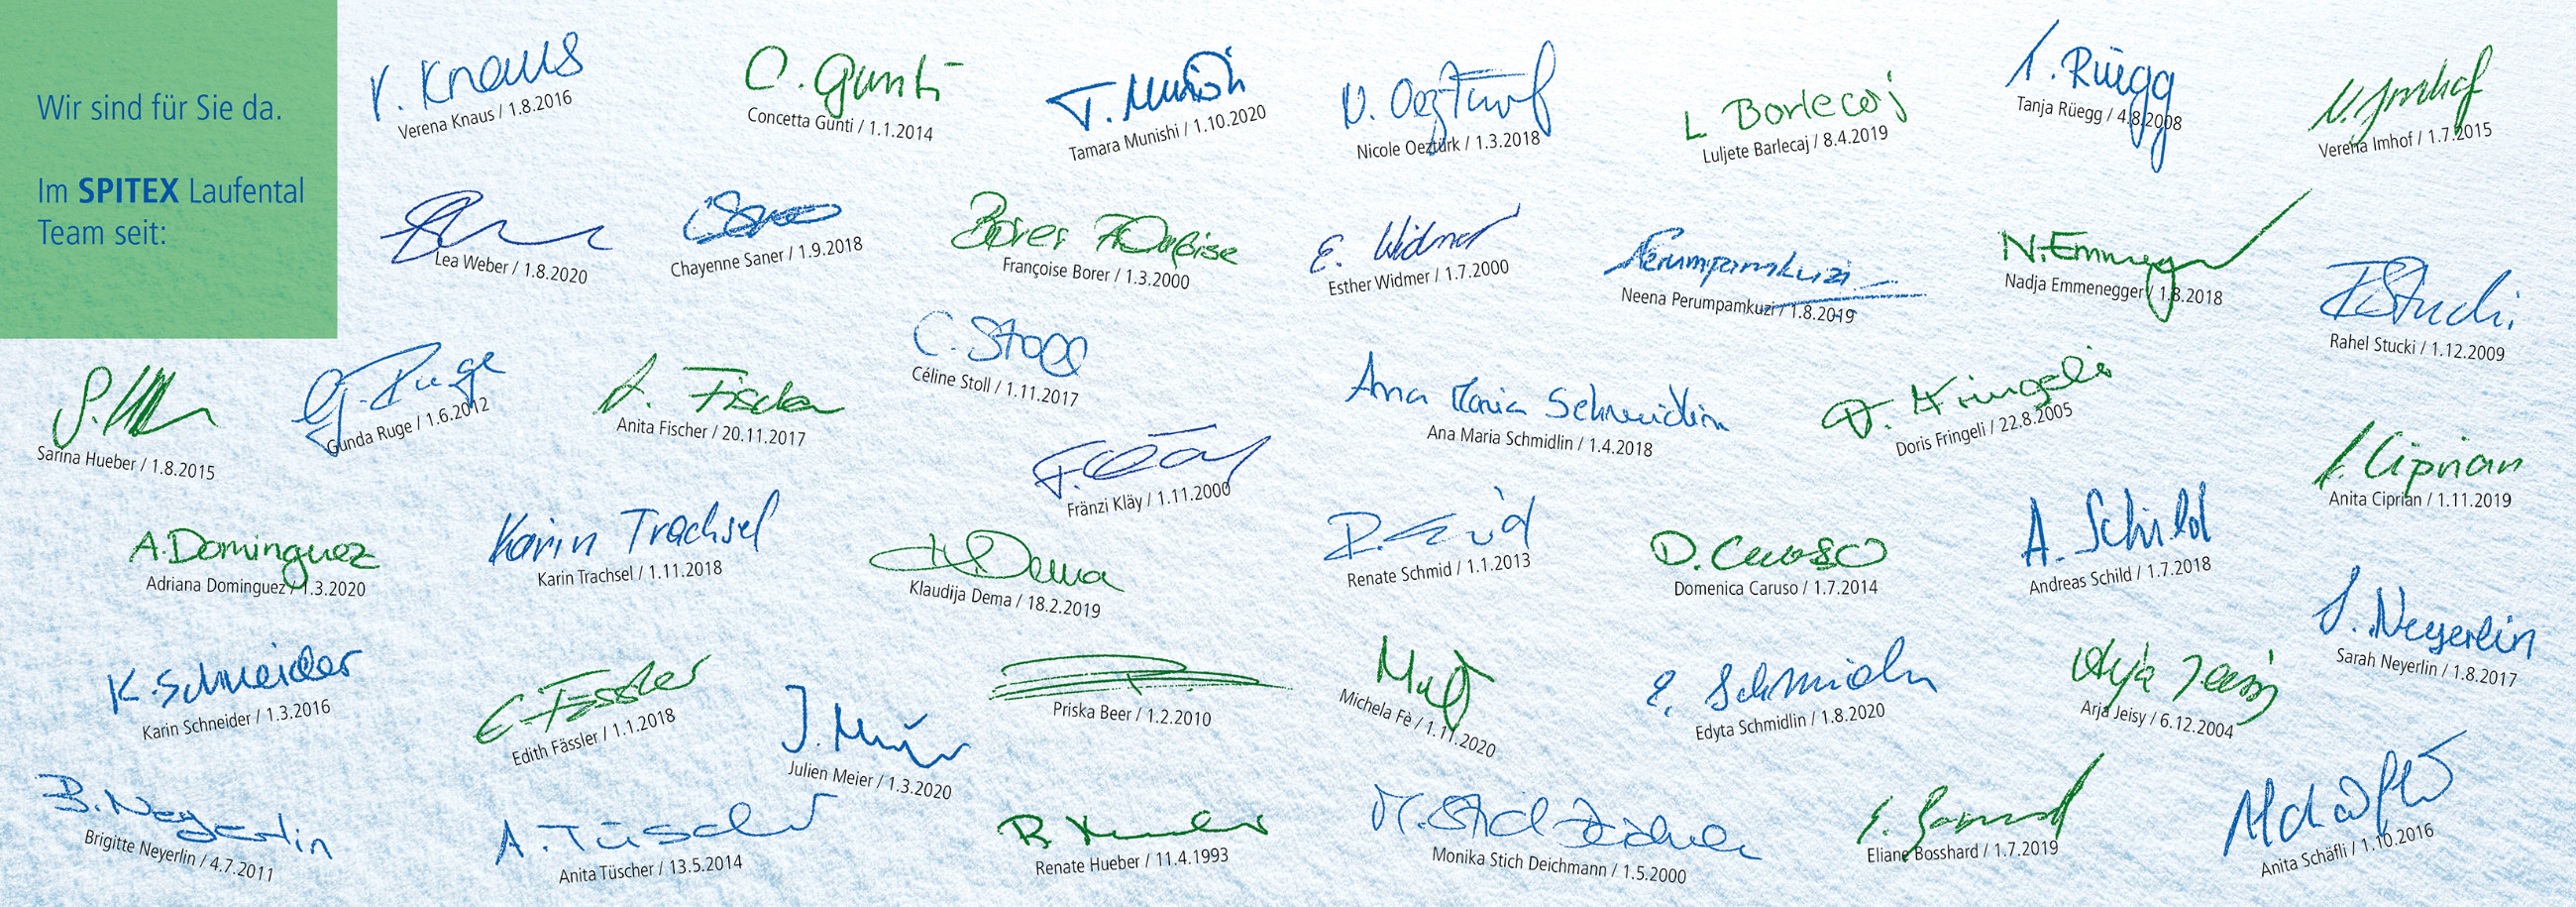 Wir sind für Sie da.
Im SPITEX Laufental
Team seit:
V. Knaus
Verena Knaus / 1.8.2016
C. Gunti
Concetta Gunti / 1.1.2014
T. Munishi
Tamara Munishi / 1.10.2020
N. Oeztürk
Nicole Oeztürk / 1.3.2018
L Barlecaj
Luljete Barlecaj / 8.4.2019
T. Rüegg
Tanja Rüegg / 4.8.2008
V. Imhof
Verena Imhof / 1.7.2015
Lea Weber / 1.8.2020
Chayenne Saner / 1.9.2018
Borer Françoise
Françoise Borer / 1.3.2000
E. Widmer
Esther Widmer / 1.7.2000
Perumpamkuzi
Neena Perumpamkuzi / 1.8.2019
N. Emmenegger
Nadja Emmenegger / 1.8.2018
R Stucki
Rahel Stucki / 1.12.2009
Sarina Hueber / 1.8.2015
G. Ruge
Gunda Ruge / 1.6.2012
A. Fischer
Anita Fischer / 20.11.2017
C. Stoll
Céline Stoll / 1.11.2017
Ana Maria Schmidlin
Ana Maria Schmidlin / 1.4.2018
D. Fringeli
Doris Fringeli / 22.8.2005
F. Kläy
Fränzi Kläy / 1.11.2000
A. Ciprian
Anita Ciprian / 1.11.2019
A. Dominguez
Adriana Dominguez / 1.3.2020
Karin Trachsel
Karin Trachsel / 1.11.2018
K. Dema
Klaudija Dema / 18.2.2019
R. Schmid
Renate Schmid / 1.1.2013
D. Caruso
Domenica Caruso / 1.7.2014
A. Schild
Andreas Schild / 1.7.2018
S. Neyerlin
Sarah Neyerlin / 1.8.2017
K. Schneider
Karin Schneider / 1.3.2016
E. Fässler
Edith Fässler / 1.1.2018
J. Meier
Julien Meier / 1.3.2020
Priska Beer / 1.2.2010
Michela Fè / 1.11.2020
E. Schmidlin
Edyta Schmidlin / 1.8.2020
Arja Jeisy
Arja Jeisy / 6.12.2004
B. Neyerlin
Brigitte Neyerlin / 4.7.2011
A. Tüscher
Anita Tüscher / 13.5.2014
R. Hueber
Renate Hueber / 11.4.1993
M. Stich Deichmann
Monika Stich Deichmann / 1.5.2000
E. Bosshard
Eliane Bosshard / 1.7.2019
Anita Schäfli / 1.10.2016